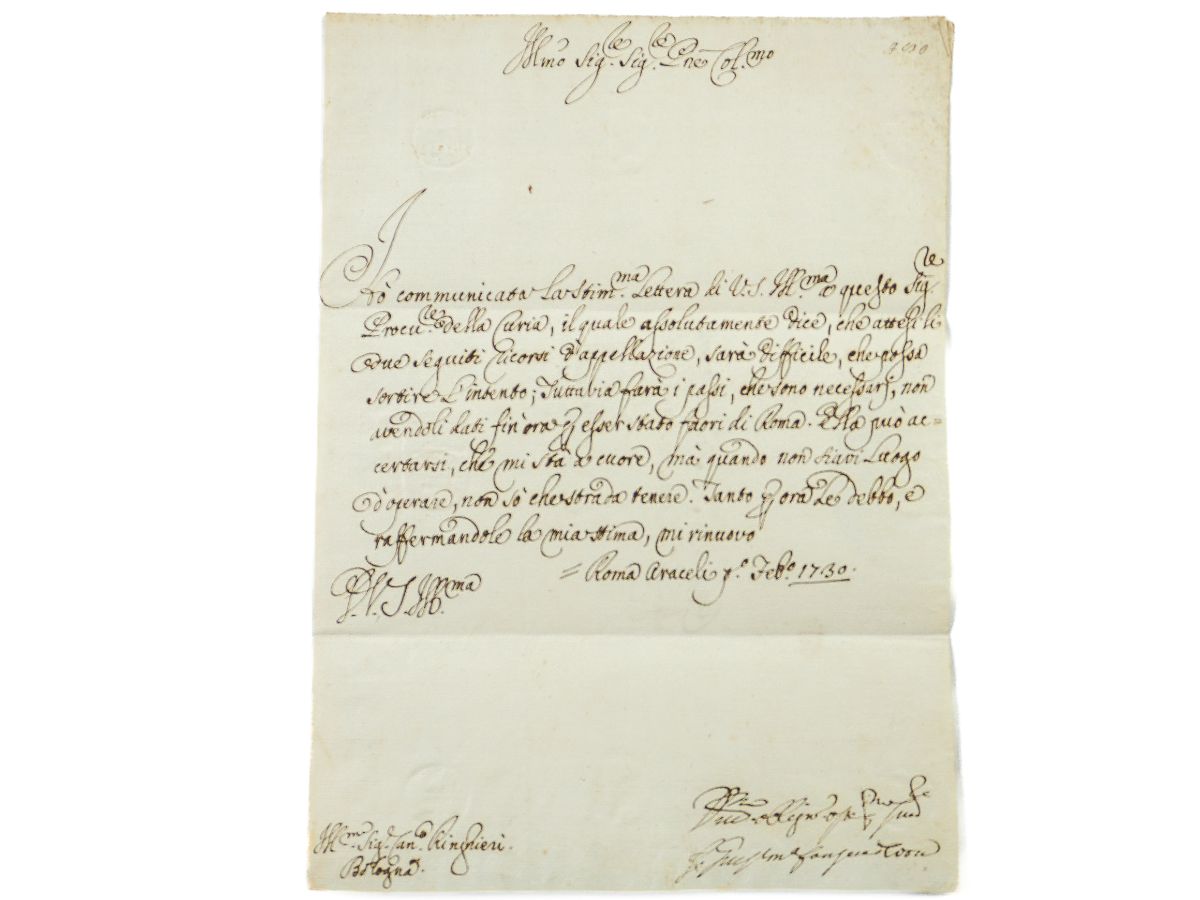 Ill.mo Sig.re Sig.re Pne Col.mo
Hò communicata la stim.ma Lettera di V.S. Ill.ma a questo Sig.re
Procu.le della Curia, il quale assolutamente dice, che attesi li
due seguiti ricorsi d'appellazione, sarà difficile, che possa
sortire l'intento; Tuttavia farà i passi, che sono necessarj, non
avendoli dati fin'ora p esser stato fuori di Roma. Ella può ac=
certarsi, che mi stà a cuore, mà quando non siavi Luogo
d'operare, non sò che strada tenere. Tanto p ora Le debbo, e
raffermandole la mia stima, mi rinuovo
= Roma Araceli p.o Feb.o 1730.
D.V.S. Ill.ma
Ill.mo Sig.r Can.o Ringhieri.
Bologna.